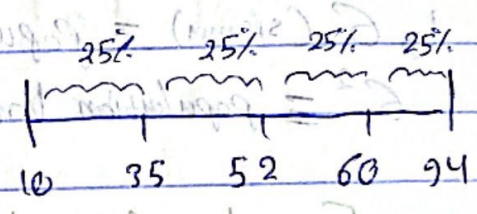 25% 25% 25% 25%
10 35 52 60 94